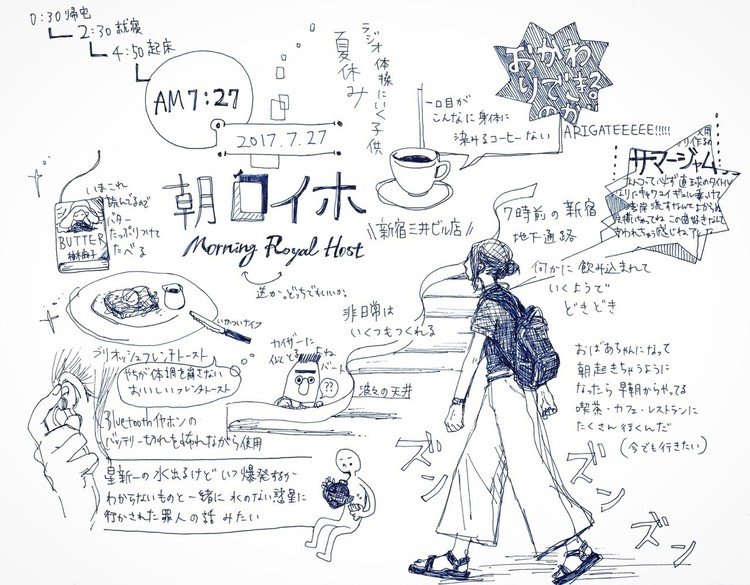 0:30 帰宅
2:30 就寝
4:50 起床
AM7:27
2017.7.27
ラジオ体操にいく子供
夏休み
一口目が
こんなに身体に
染みるコーヒーない
おかわ
りできる
のか
ARIGATEEEEE!!!!!
サマージャム
いまこれ
読んでるので
バター
たっぷりつけて
たべる
BUTTER
柚木麻子
朝ロイホ
Morning Royal Host
逆か。どっちでもいいか。
\\新宿三井ビル店//
7時前の新宿
地下通路
何かに飲み込まれて
いくようで
どきどき
いかついナイフ
ブリオッシュフレンチトースト
やちが体調を崩さない
おいしいフレンチトースト
カイザーに
似てるね
バート
??
非日常は
いくつもつくれる
波々の天井
Bluetoothイヤホンの
バッテリー切れを怖れながら使用
星新一の水出るけどいつ爆発するか
わからないものと一緒に水のない惑星に
行かされた罪人の話みたい
おばあちゃんになって
朝起きちゃうように
なったら早朝からやってる
喫茶・カフェ・レストランに
たくさん行くんだ
(今でも行きたい)
ズン
ズン
ズン